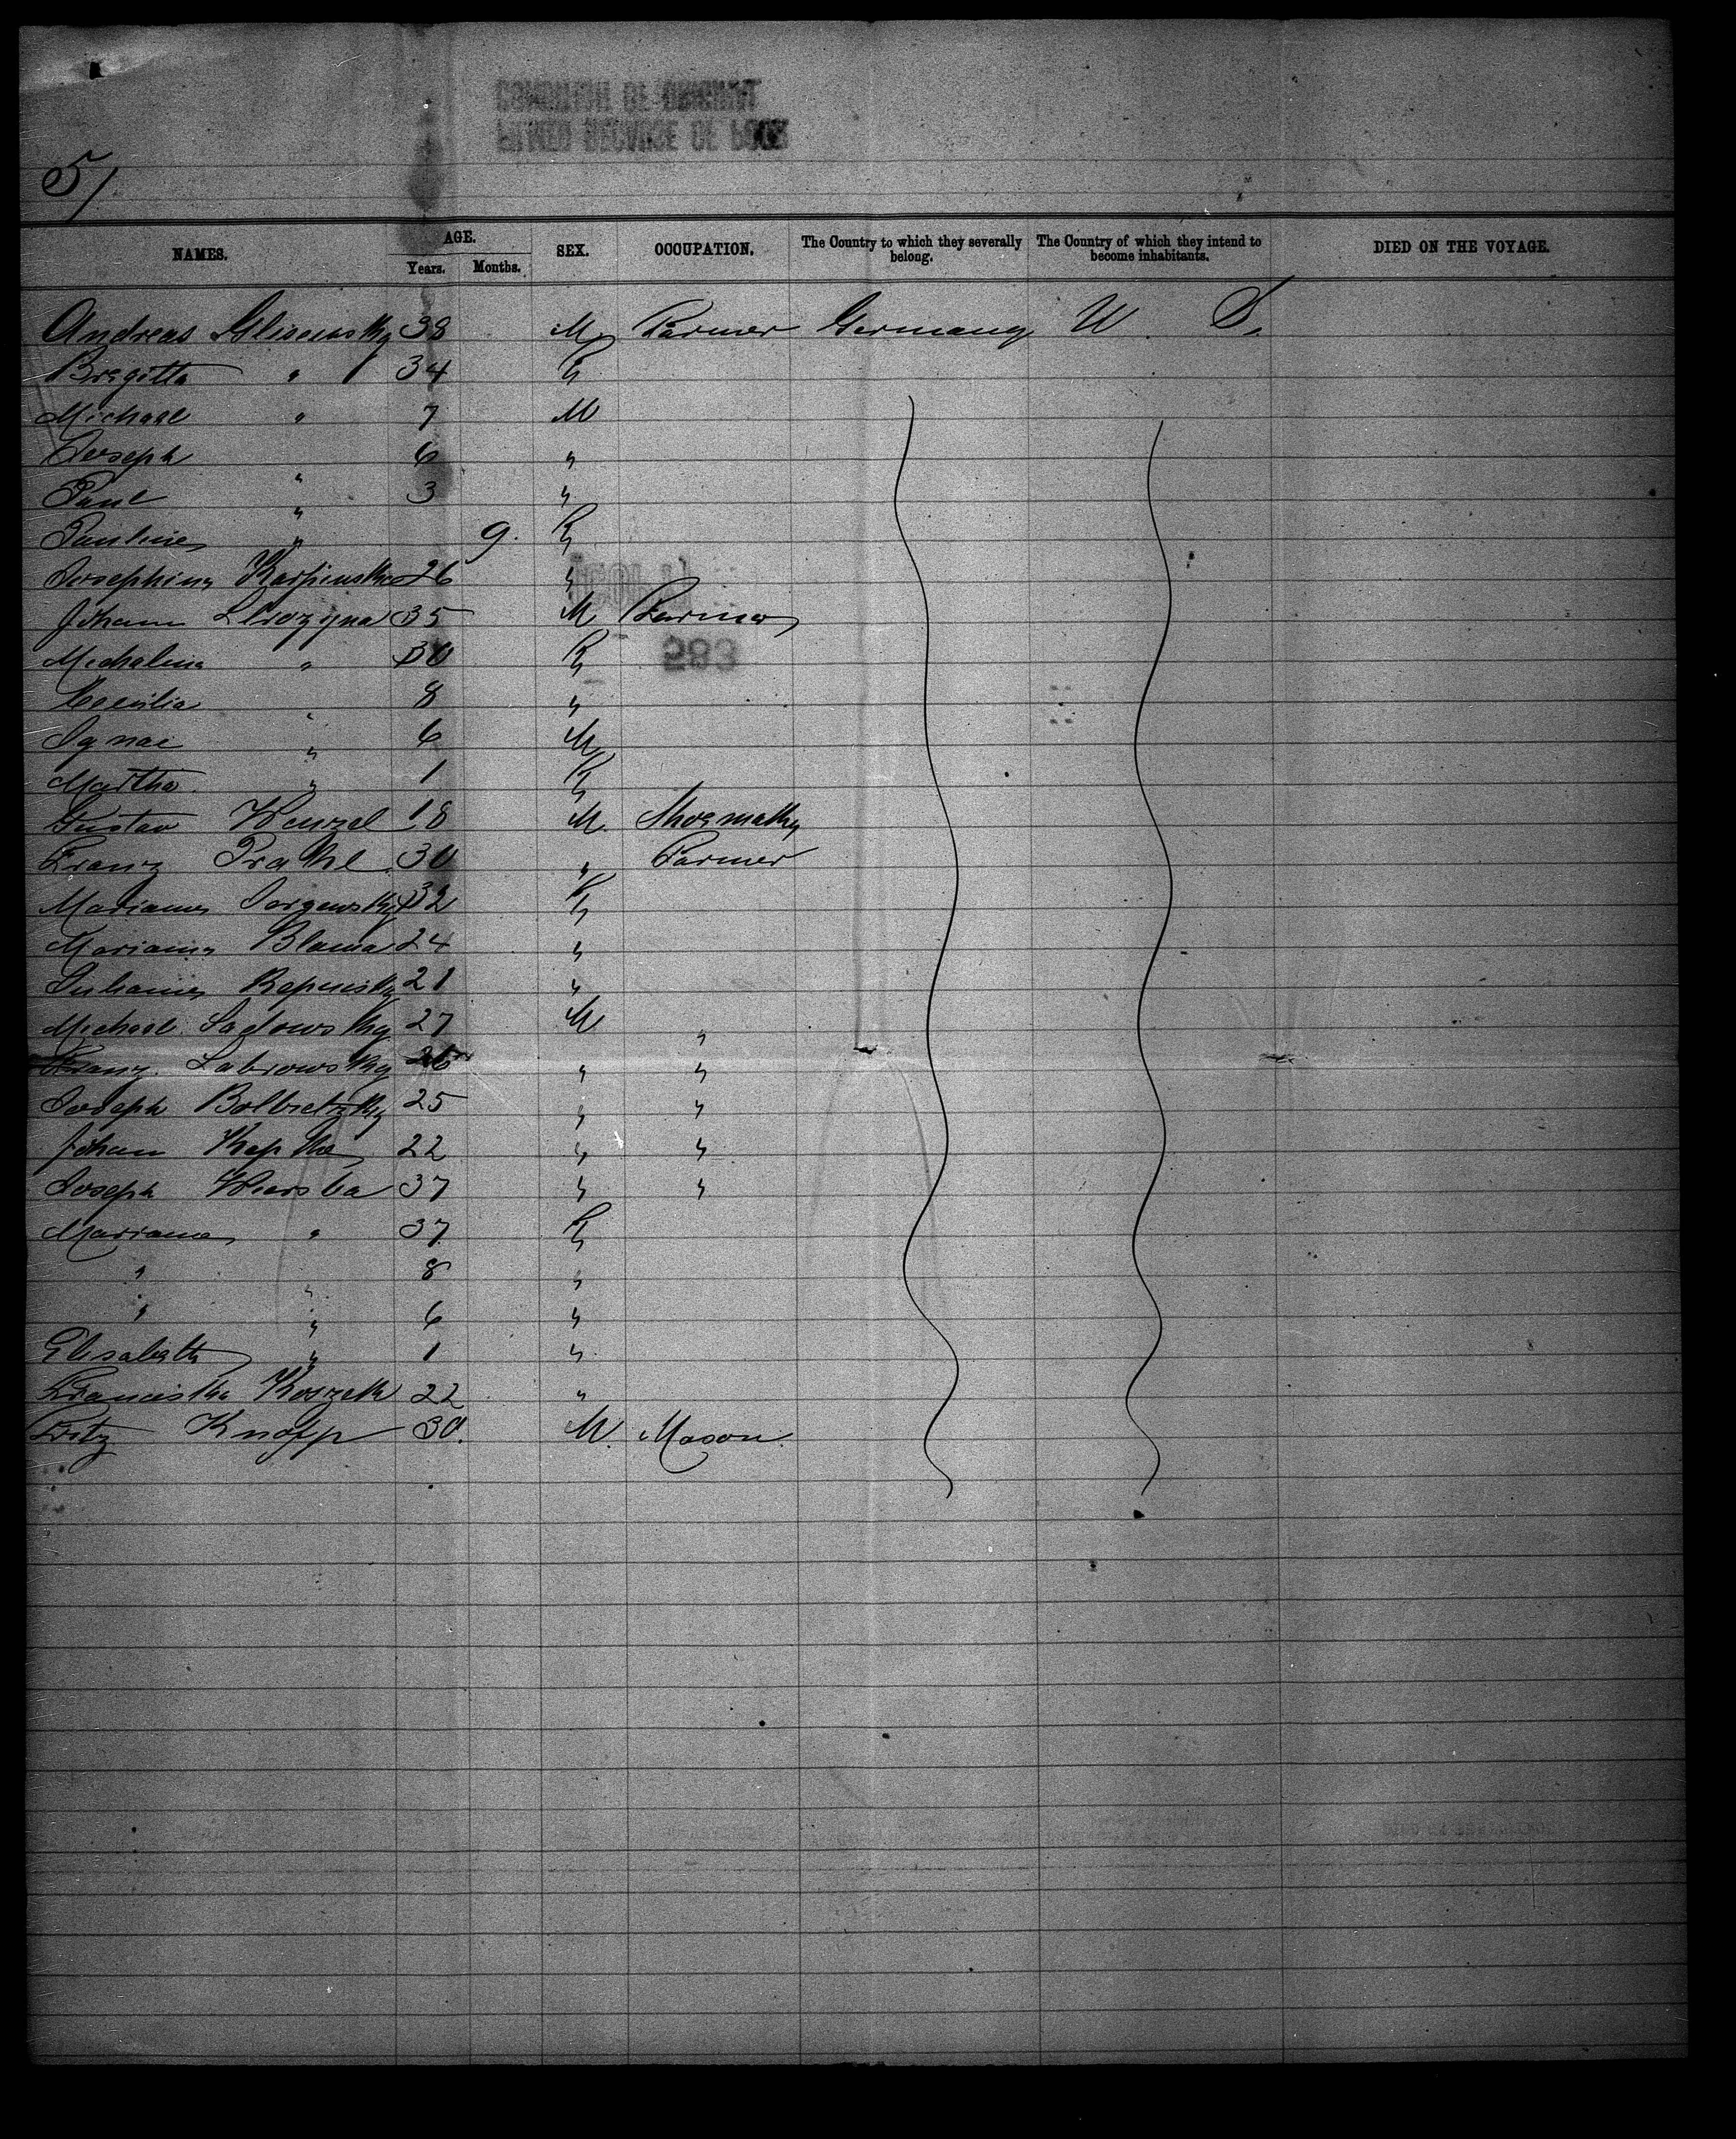 5/
NAMES. AGE. Years. Months. SEX. OCCUPATION. The Country to which they severally belong. The Country of which they intend to become inhabitants. DIED ON THE VOYAGE.
Andreas 38 M Farmer Germany U. S.
Bregitta " 34 F
Michael " 7 M
Joseph " 6 "
Paul " 3 "
Pauline " 9. F
Josephine Karpinska 26 "
Johann 35 M Farmer
Michalina " 30 F
Cecilia " 8 "
Ignac " 6 M
Martha " 1 F
Gustav Wenzel 18 M. Shoemaker
Franz Prahl 30 " Farmer
Marianna 32 F
Marianna Blama 24 "
Julianna 21 "
Michael Sadowsky 27 M "
Franz Labrowsky 26 " "
Joseph 25 " "
Johann Kepke 22 " "
Joseph Wiersba 37 " "
Marianna " 37 F
" " 8 "
" " 6 "
Elisabeth " 1 "
Franciska Koszek 22 "
Fritz Knopp 30. M. Mason.
583